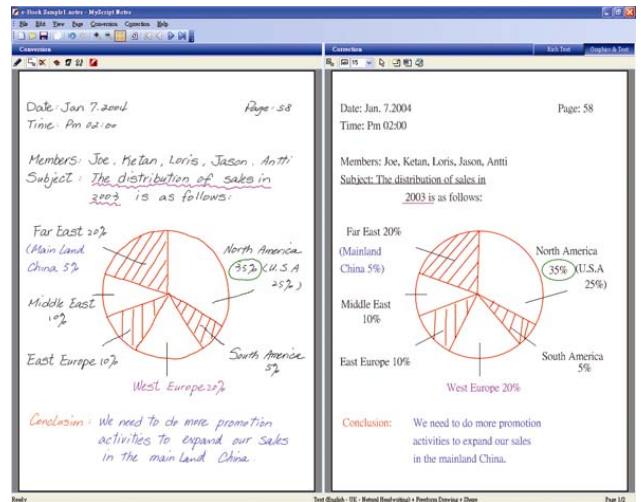 e-Book Sample1.notes - MyScript Notes
File Edit View Page Conversion Correction Help
Conversion
Date: Jan 7.2004 Page: 58
Time: Pm 02:00
Members: Joe, Ketan, Loris, Jason, Antti
Subject: The distribution of sales in
2003 is as follows:
Far East 20%
(Main Land
China 5%
North America
35% (U.S.A
25%)
Middle East
10%
East Europe 10%
South America
5%
West Europe 20%
Conclusion: We need to do more promotion
activities to expand our sales
in the main Land China.
Correction Rich Text Graphics & Text
15
Date: Jan. 7.2004 Page: 58
Time: Pm 02:00
Members: Joe, Ketan, Loris, Jason, Antti
Subject: The distribution of sales in
2003 is as follows:
Far East 20%
(Mainland
China 5%)
North America
35% (U.S.A
25%)
Middle East
10%
East Europe 10%
South America
5%
West Europe 20%
Conclusion: We need to do more promotion
activities to expand our sales
in the mainland China.
Ready Text (English - UK - Natural Handwriting) + Freeform Drawing + Shape Page 1/2